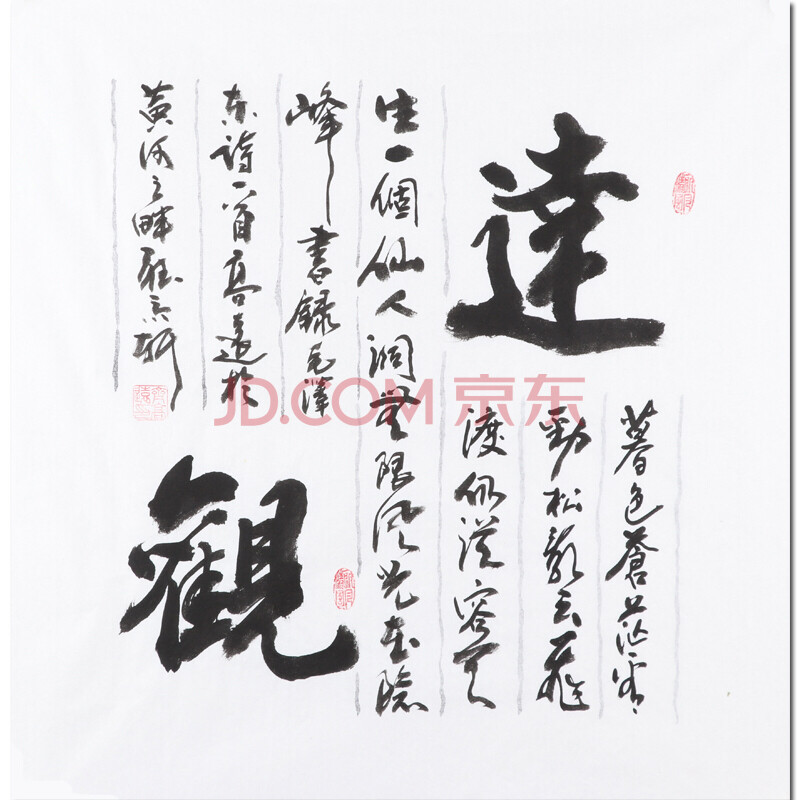 達
觀
暮色蒼茫看
勁松亂云飛
渡仍從容天
生一個仙人洞無限風光在險
峰書錄毛澤
东詩一首高遠於
黃河之畔軒
JD.COM 京东